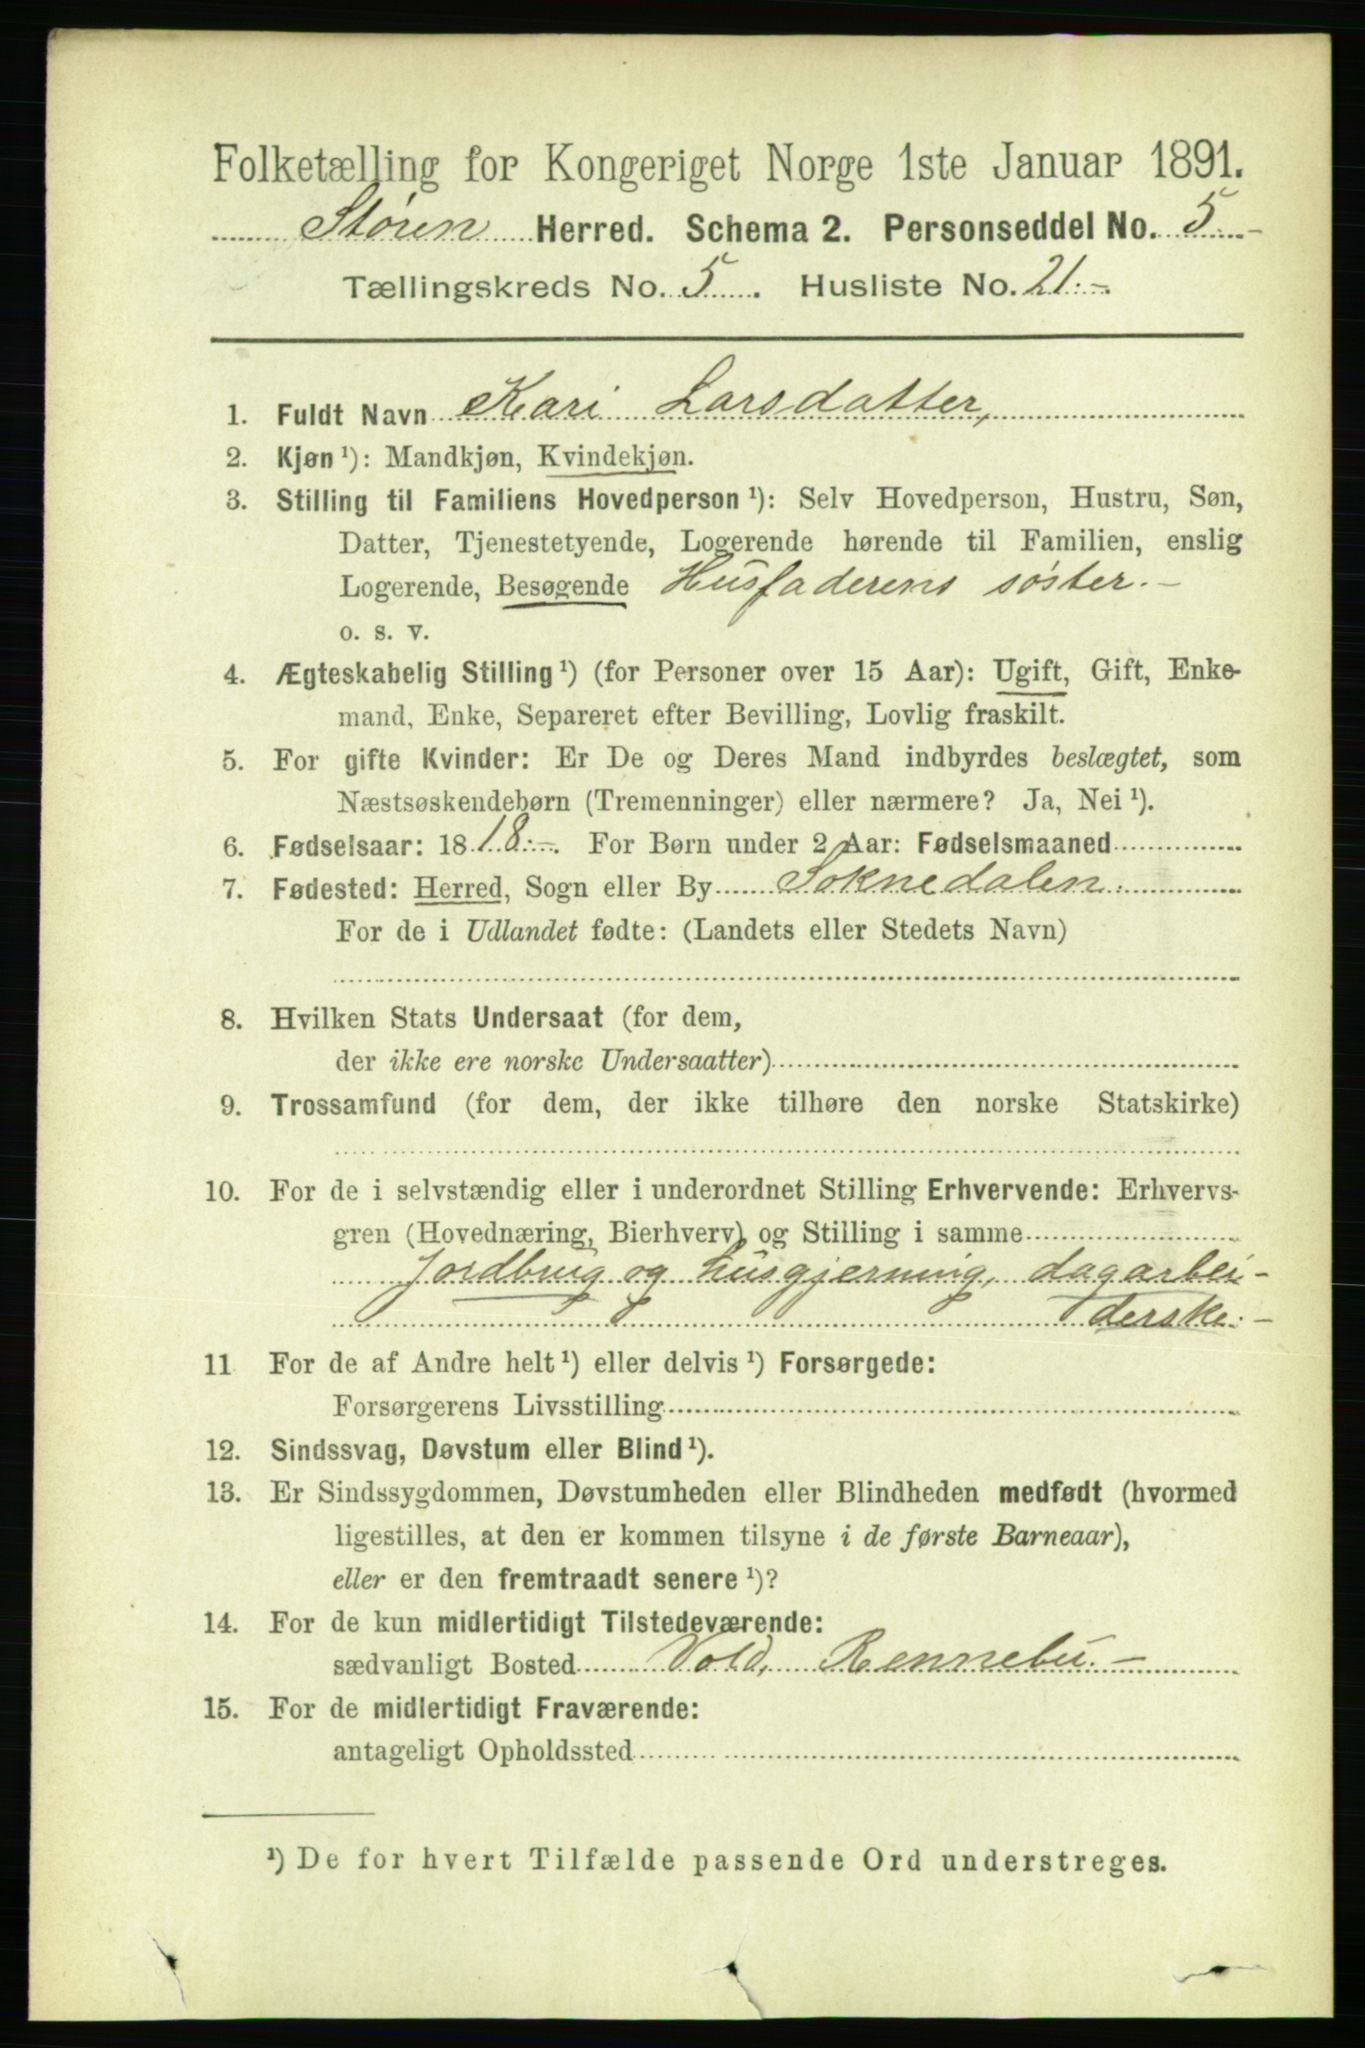 Folketælling for Kongeriget Norge 1ste Januar 1891.
Støren Herred. Schema 2. Personseddel No. 5
Tællingskreds No. 5. Husliste No. 21.-
1. Fuldt Navn Kari Larsdatter,
2. Kjøn ¹): Mandkjøn, Kvindekjøn.
3. Stilling til Familiens Hovedperson ¹): Selv Hovedperson, Hustru, Søn,
Datter, Tjenestetyende, Logerende hørende til Familien, enslig
Logerende, Besøgende Husfaderens søster.-
o. s. v.
4. Ægteskabelig Stilling ¹) (for Personer over 15 Aar): Ugift, Gift, Enke-
mand, Enke, Separeret efter Bevilling, Lovlig fraskilt.
5. For gifte Kvinder: Er De og Deres Mand indbyrdes beslægtet, som
Næstsøskendebørn (Tremenninger) eller nærmere? Ja, Nei ¹).
6. Fødselsaar: 1818.-. For Børn under 2 Aar: Fødselsmaaned
7. Fødested: Herred, Sogn eller By Soknedalen.
For de i Udlandet fødte: (Landets eller Stedets Navn)
8. Hvilken Stats Undersaat (for dem,
der ikke ere norske Undersaatter)
9. Trossamfund (for dem, der ikke tilhøre den norske Statskirke)
10. For de i selvstændig eller i underordnet Stilling Erhvervende: Erhvervs-
gren (Hovednæring, Bierhverv) og Stilling i samme
Jordbrug og husgjerning, dagarbei-
derske.-
11 For de af Andre helt ¹) eller delvis ¹) Forsørgede:
Forsørgerens Livsstilling
12. Sindssvag, Døvstum eller Blind ¹).
13. Er Sindssygdommen, Døvstumheden eller Blindheden medfødt (hvormed
ligestilles, at den er kommen tilsyne i de første Barneaar),
eller er den fremtraadt senere ¹)?
14. For de kun midlertidigt Tilstedeværende:
sædvanligt Bosted Vold, Rennebu.-
15. For de midlertidigt Fraværende:
antageligt Opholdssted
¹) De for hvert Tilfælde passende Ord understreges.